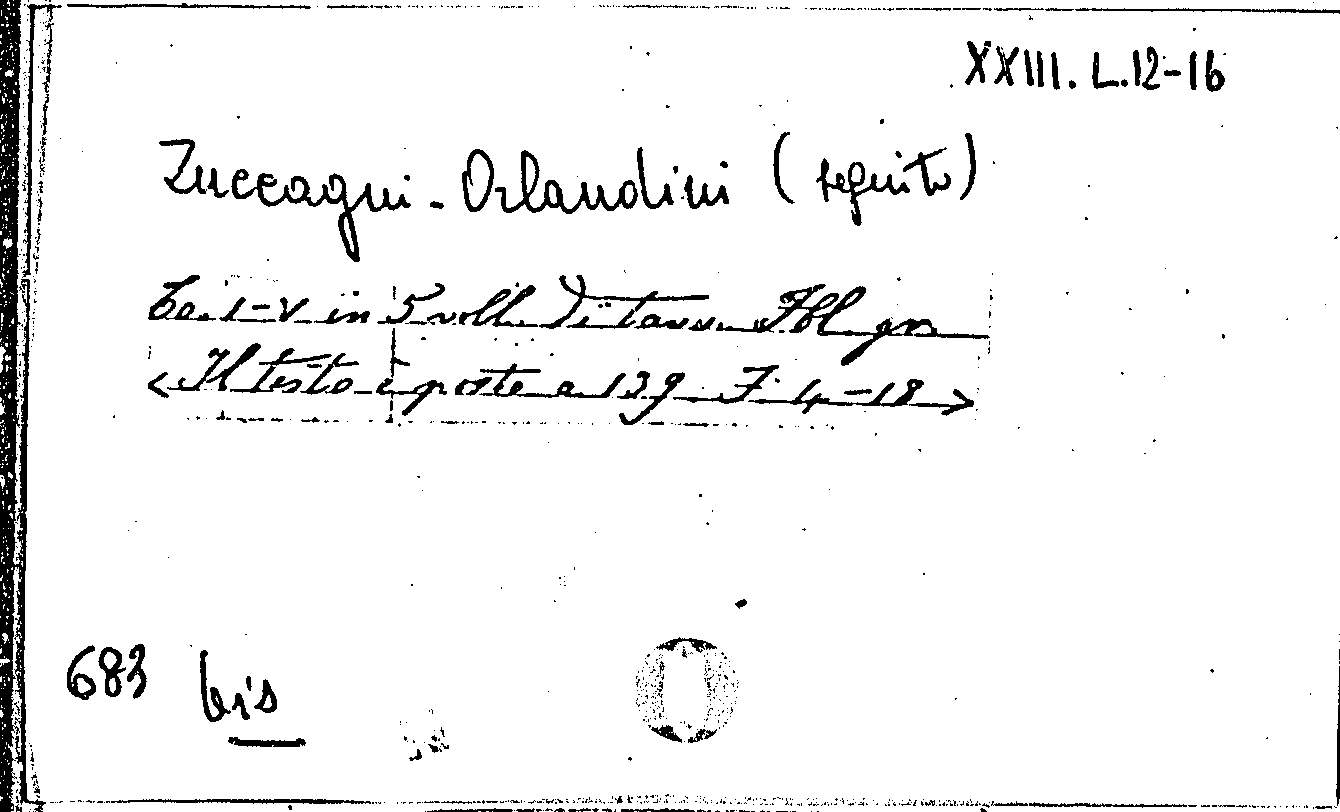 XXIII. L.12-16
Zuccagni-Orlandini (seguito)
To. I-V in 5 voll. di tavv. Fol. gr.
< Il testo è posto a 139. F. 4-18 >
683 bis